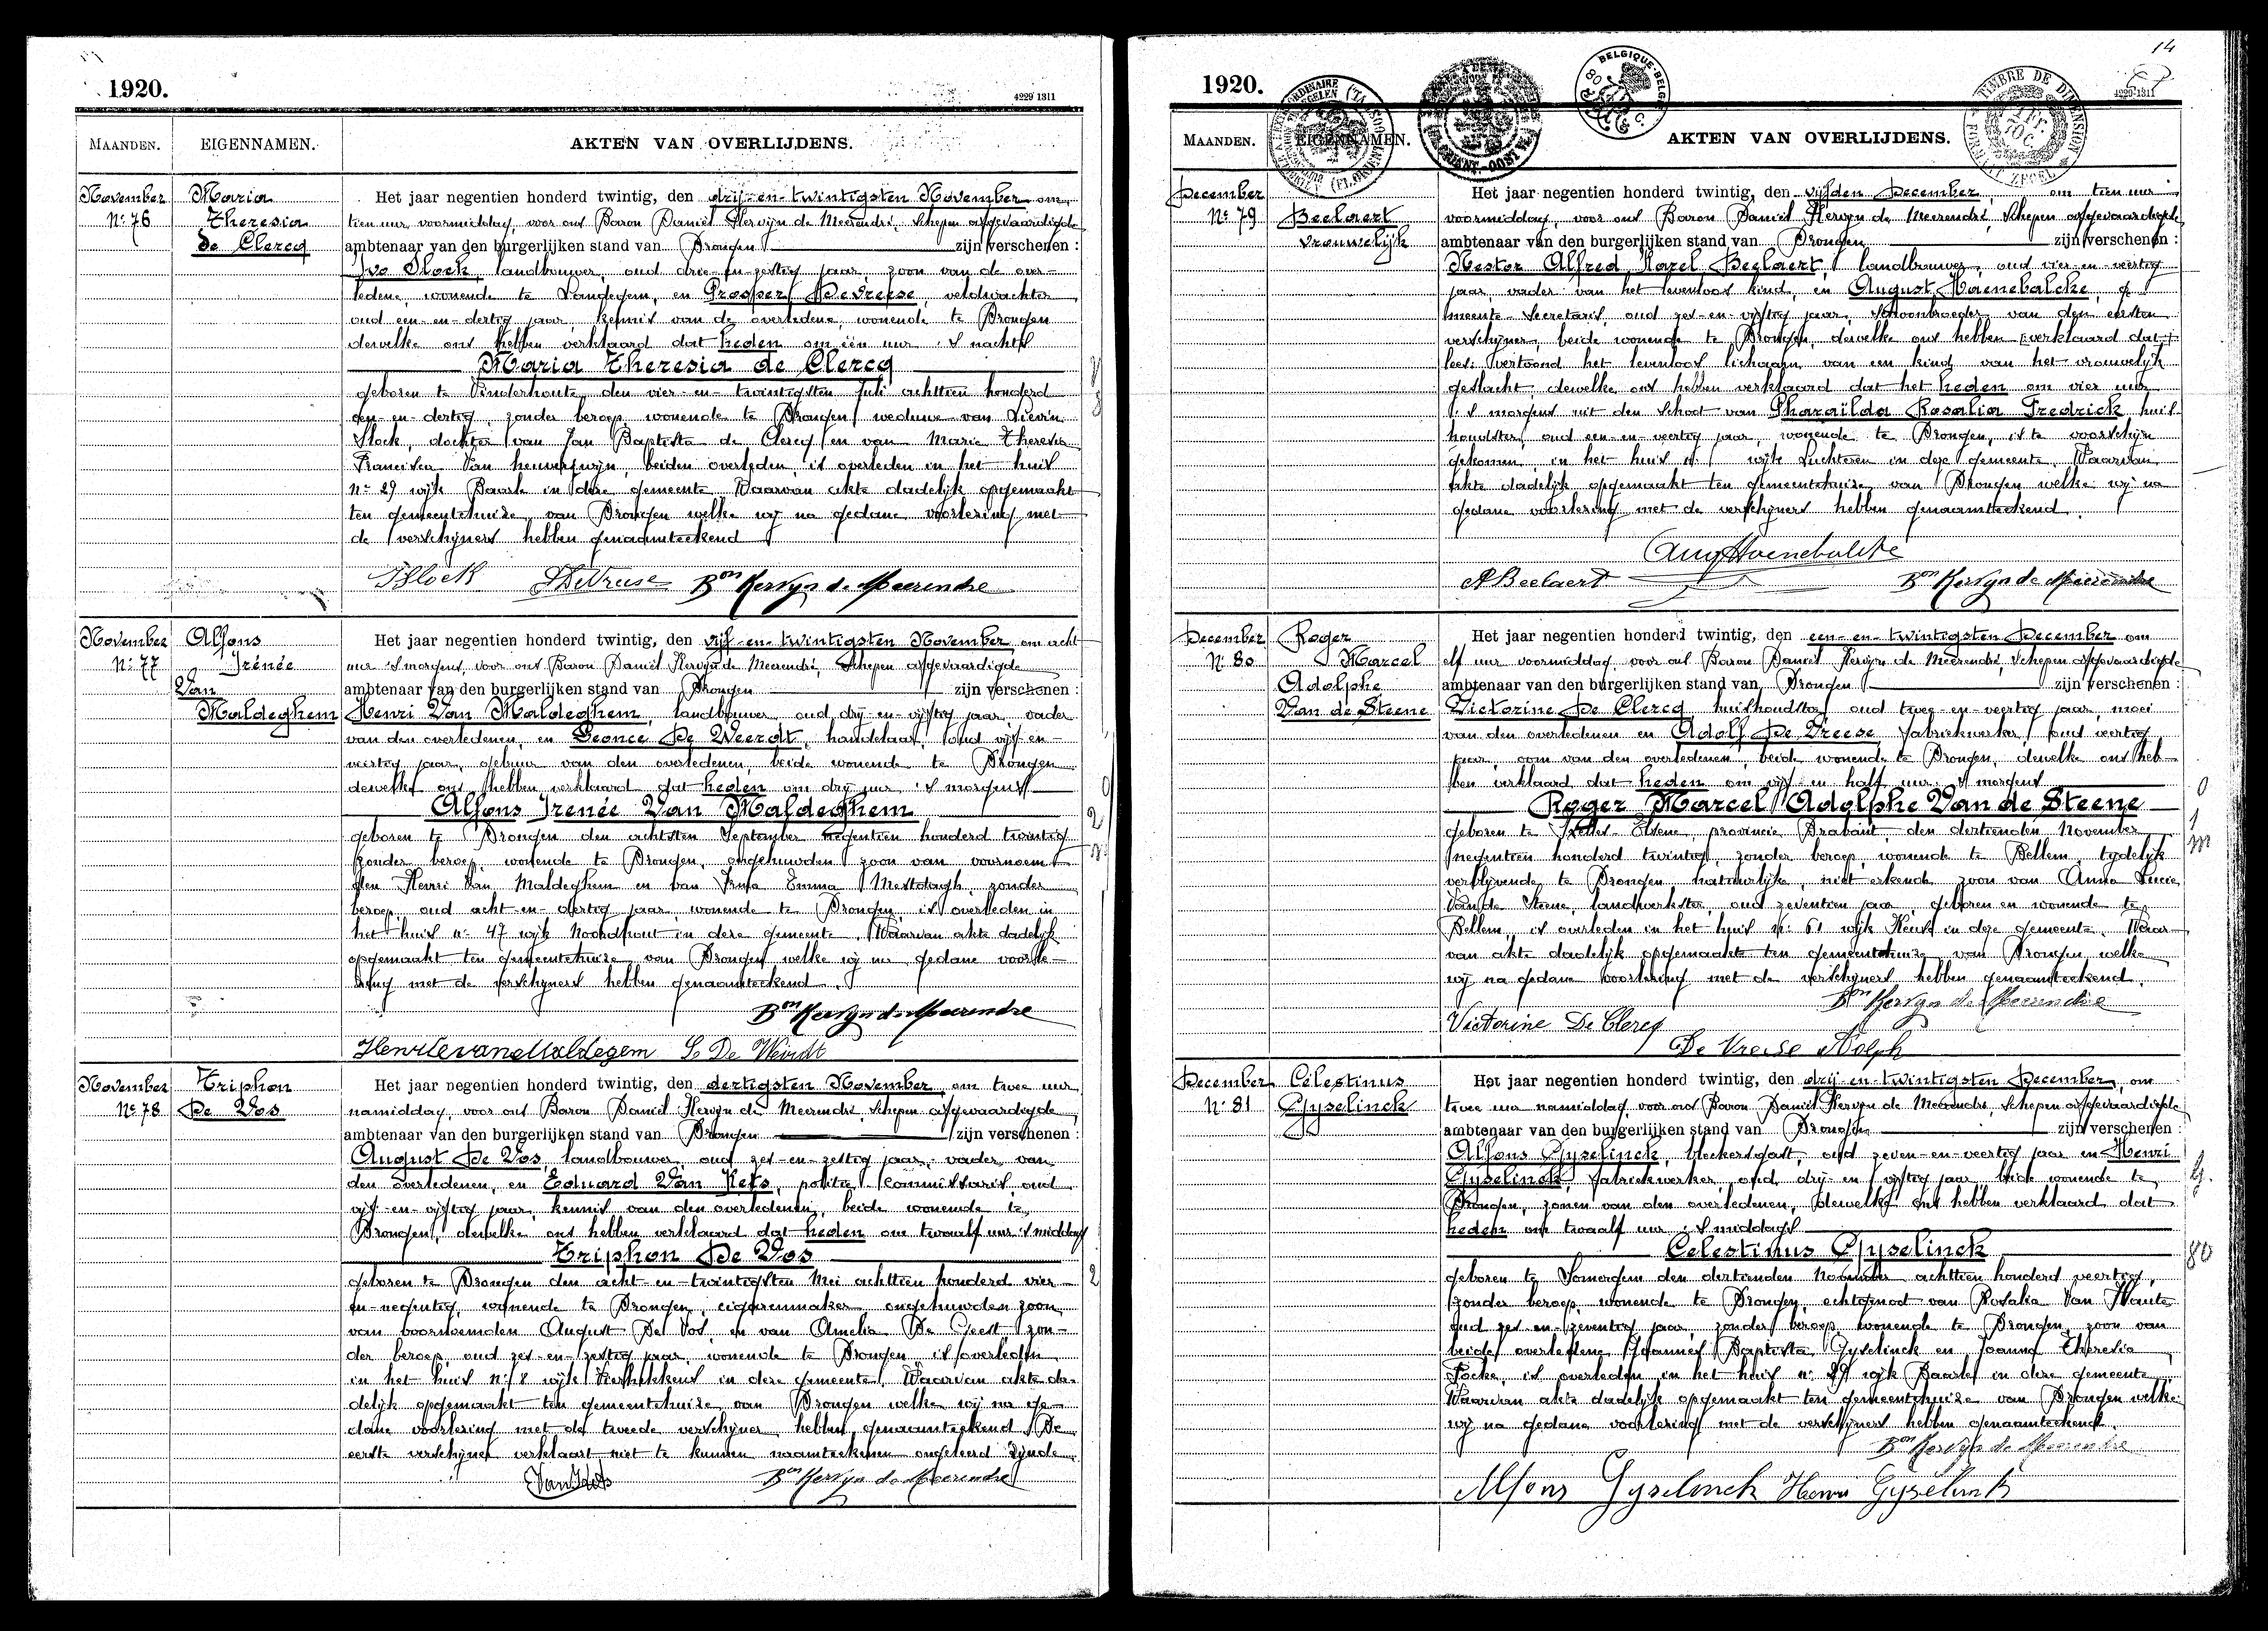 1920.
4229 1311
MAANDEN.
EIGENNAMEN.
AKTEN VAN OVERLIJDENS.
November
Nº 76
Maria
Theresia
de Clercq
Het jaar negentien honderd twintig, den drij-en-twintigsten November om
tien uur voormiddag, voor ons Baron Daniël Kervyn de Meerendré, Schepen afgevaardigde
ambtenaar van den burgerlijken stand van Drongen zijn verschenen :
Ivo Slock, landbouwer, oud drie-en-zestig jaar, zoon van de over-
ledene, wonende te Landegem, en Prosper De Vreese, veldwachter
oud een-en-dertig jaar, kennis van de overledene, wonende te Drongen
dewelke ons hebben verklaard dat heden om één uur 's nachts
Maria Theresia de Clercq
geboren te Vinderhoute, den vier-en-twintigsten Juli achttien honderd
een-en-dertig, zonder beroep, wonende te Drongen, weduwe van Lievin
Slock, dochter van Jan Baptista de Clercq en van Marie Theresia
Francisca Van heuverswijn, beiden overleden, is overleden in het huis
Nº 29 wijk Baarle in deze gemeente. Waarvan akte dadelijk opgemaakt
ten gemeentehuize van Drongen welke wij na gedane voorlezing met
de verschijners hebben genaamteekend
ISlock DeVreese Bon Kervyn de Meerendre
November
Nº 77
Alfons
Irénée
Van
Maldeghem
Het jaar negentien honderd twintig, den vijf-en-twintigsten November, om acht
uur 's morgens, voor ons Baron Daniël Kervyn de Meerendré, Schepen afgevaardigde
ambtenaar van den burgerlijken stand van Drongen zijn verschenen :
Henri Van Maldeghem, landbouwer, oud drij-en-vijftig jaar, vader
van den overledenen, en Leonce De Weerdt, handelaar, oud vijf-en-
veertig jaar, gebuur van den overledenen, beide wonende te Drongen
dewelke ons hebben verklaard dat heden om drij uur 's morgens
Alfons Irenée Van Maldeghem
geboren te Drongen den achtsten September negentien honderd twintig
zonder beroep, wonende te Drongen, ongehuwden zoon van voornoem-
den Henri Van Maldeghem en van Irma Emma Mestdagh, zonder
beroep, oud acht-en-dertig jaar, wonende te Drongen, is overleden in
het huis nº 47 wijk Noordhout in deze gemeente. Waarvan akte dadelijk
opgemaakt ten gemeentehuize van Drongen welke wij na gedane voorle-
zing met de verschijners hebben genaamteekend.
Bon Kervyn de Meerendre
Henri Van Maldegem L. De Weirdt
November
Nº 78
Triphon
De Vos
Het jaar negentien honderd twintig, den dertigsten November, om twee uur
namiddag, voor ons Baron Daniël Kervyn de Meerendré, Schepen afgevaardigde
ambtenaar van den burgerlijken stand van Drongen zijn verschenen :
August De Vos, landbouwer, oud zes-en-zestig jaar, vader van
den overledenen, en Eduard Van Hets, politie commissaris, oud
vijf-en-vijftig jaar, kennis van den overledenen, beide wonende te
Drongen, dewelke ons hebben verklaard dat heden om twaalf uur 's middags
Triphon De Vos
geboren te Drongen den acht-en-twintigsten Mei achttien honderd vier-
en-negentig, wonende te Drongen, cigarenmaker, ongehuwden zoon
van voornoemden August De Vos, en van Amelia De Geest, zon-
der beroep, oud zes-en-zestig jaar, wonende te Drongen, is overleden
in het huis nº 8 wijk Kerhekkens in deze gemeente. Waarvan akte da-
delijk opgemaakt ten gemeentehuize van Drongen welke wij na ge-
dane voorlezing met de tweede verschijner hebben genaamteekend. De
eerste verschijner verklaart niet te kunnen naamteekenen ongeleerd zijnde.
Bon Kervyn de Meerendre
14
1920.
4229-1311
BELGIQUE-BELGIË
TIMBRE DE DIMENSION
MAANDEN.
EIGENNAMEN.
AKTEN VAN OVERLIJDENS.
December
Nº 79
Beelaert
vrouwelijk
Het jaar negentien honderd twintig, den vijfden December, om tien uur
voormiddag, voor ons Baron Daniël Kervyn de Meerendré, Schepen afgevaardigde
ambtenaar van den burgerlijken stand van Drongen zijn verschenen :
Nestor Alfred Karel Beelaert, landbouwer, oud vier-en-veertig
jaar, vader van het levenloos kind, en August Haenebalcke, ge-
meente-Secretaris, oud zes-en-vijftig jaar, schoonbroeder van den eersten
verschijner, beide wonende te Drongen, dewelke ons hebben verklaard dat
vertoond het levenloos lichaam van een kind van het vrouwelijk
geslacht, dewelke ons hebben verklaard dat het heden om vier uur
's morgens uit den schoot van Pharaïlda Rosalia Fredrick, huis-
houdster, oud een-en-veertig jaar, wonende te Drongen, is te voorschijn
gekomen, in het huis nº 1 wijk Luchteren in deze gemeente. Waarvan
akte dadelijk opgemaakt ten gemeentehuize van Drongen welke wij na
gedane voorlezing met de verschijners hebben genaamteekend.
Aug Haenebalcke
A Beelaert Bon Kervyn de Meerendre
December
Nº 80
Roger
Marcel
Adolphe
Van de Steene
Het jaar negentien honderd twintig, den een-en-twintigsten December om
elf uur voormiddag, voor ons Baron Daniël Kervyn de Meerendré, Schepen afgevaardigde
ambtenaar van den burgerlijken stand van Drongen zijn verschenen :
Victorine De Clercq huishoudster, oud twee-en-veertig jaar, moei
van den overledenen en Adolf De Vreese fabriekwerker, oud veertig
jaar, oom van den overledenen, beide wonende te Drongen, dewelke ons heb-
ben verklaard dat heden om vijf en half uur 's morgens
Roger Marcel Adolphe Van de Steene
geboren te Ixelles-Elsene, provincie Brabant, den dertienden November
negentien honderd twintig, zonder beroep, wonende te Bellem, tijdelijk
verblijvende te Drongen natuurlijke, niet erkende zoon van Anna Lucie
Van de Steene, landwerkster, oud zeventien jaar, geboren en wonende te
Bellem, is overleden in het huis nº 61 wijk Keuze in deze gemeente. Waar-
van akte dadelijk opgemaakt ten gemeentehuize van Drongen welke
wij na gedane voorlezing met de verschijners hebben genaamteekend.
Bon Kervyn de Meerendre
Victorine De Clercq
De Vreese Adolph
December
Nº 81
Célestinus
Gyselinck
Het jaar negentien honderd twintig, den drij-en-twintigsten December, om
twee uur namiddag, voor ons Baron Daniël Kervyn de Meerendré, Schepen afgevaardigde
ambtenaar van den burgerlijken stand van Drongen zijn verschenen :
Alfons Gyselinck, bleekersgast, oud zeven-en-veertig jaar en Henri
Gyselinck, fabriekwerker, oud drij-en-vijftig jaar, beide wonende te
Drongen, zonen van den overledenen, dewelke ons hebben verklaard dat
heden om twaalf uur 's middags
Celestinus Gyselinck
geboren te Somergem den dertienden November achttien honderd veertig,
zonder beroep, wonende te Drongen, echtgenoot van Rosalia Van Haute
oud zes-en-zeventig jaar, zonder beroep, wonende te Drongen, zoon van
beide overledene Joannes Baptista Gyselinck en Joanna Theresia
Focke, is overleden in het huis nº 29 wijk Baarle in deze gemeente
Waarvan akte dadelijk opgemaakt ten gemeentehuize van Drongen welke
wij na gedane voorlezing met de verschijners hebben genaamteekend.
Bon Kervyn de Meerendre
Alfons Gyselinck Henri Gyselinck